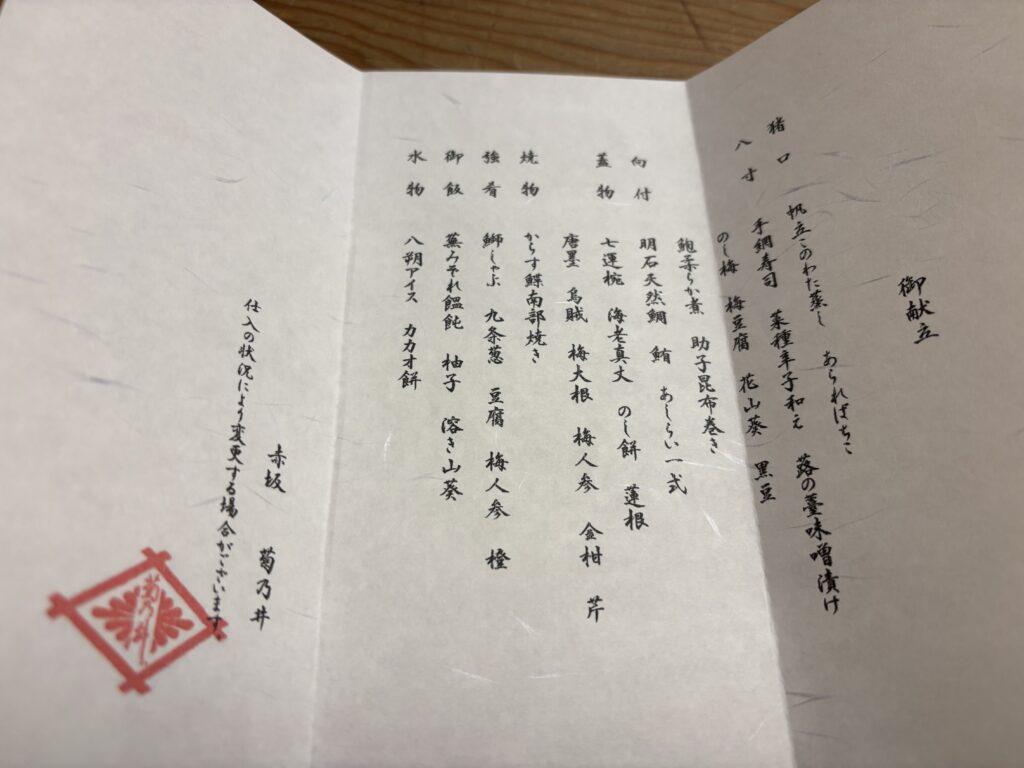 御献立
猪口 帆立このわた蒸し あらればちこ
八寸 手綱寿司 菜種辛子和え 蕗の薹味噌漬け
のし梅 梅豆腐 花山葵 黒豆
鮑柔らか煮 助子昆布巻き
向付 明石天然鯛 鮪 あしらい一式
蓋物 七運椀 海老真丈 のし餅 蓮根
唐墨 烏賊 梅大根 梅人参 金柑 芹
焼物 からす鰈南部焼き
強肴 鰤しゃぶ 九条葱 豆腐 梅人参 橙
御飯 蕪みぞれ饂飩 柚子 溶き山葵
水物 八朔アイス カカオ餅
赤坂 菊乃井
仕入の状況により変更する場合がございます。
菊乃井